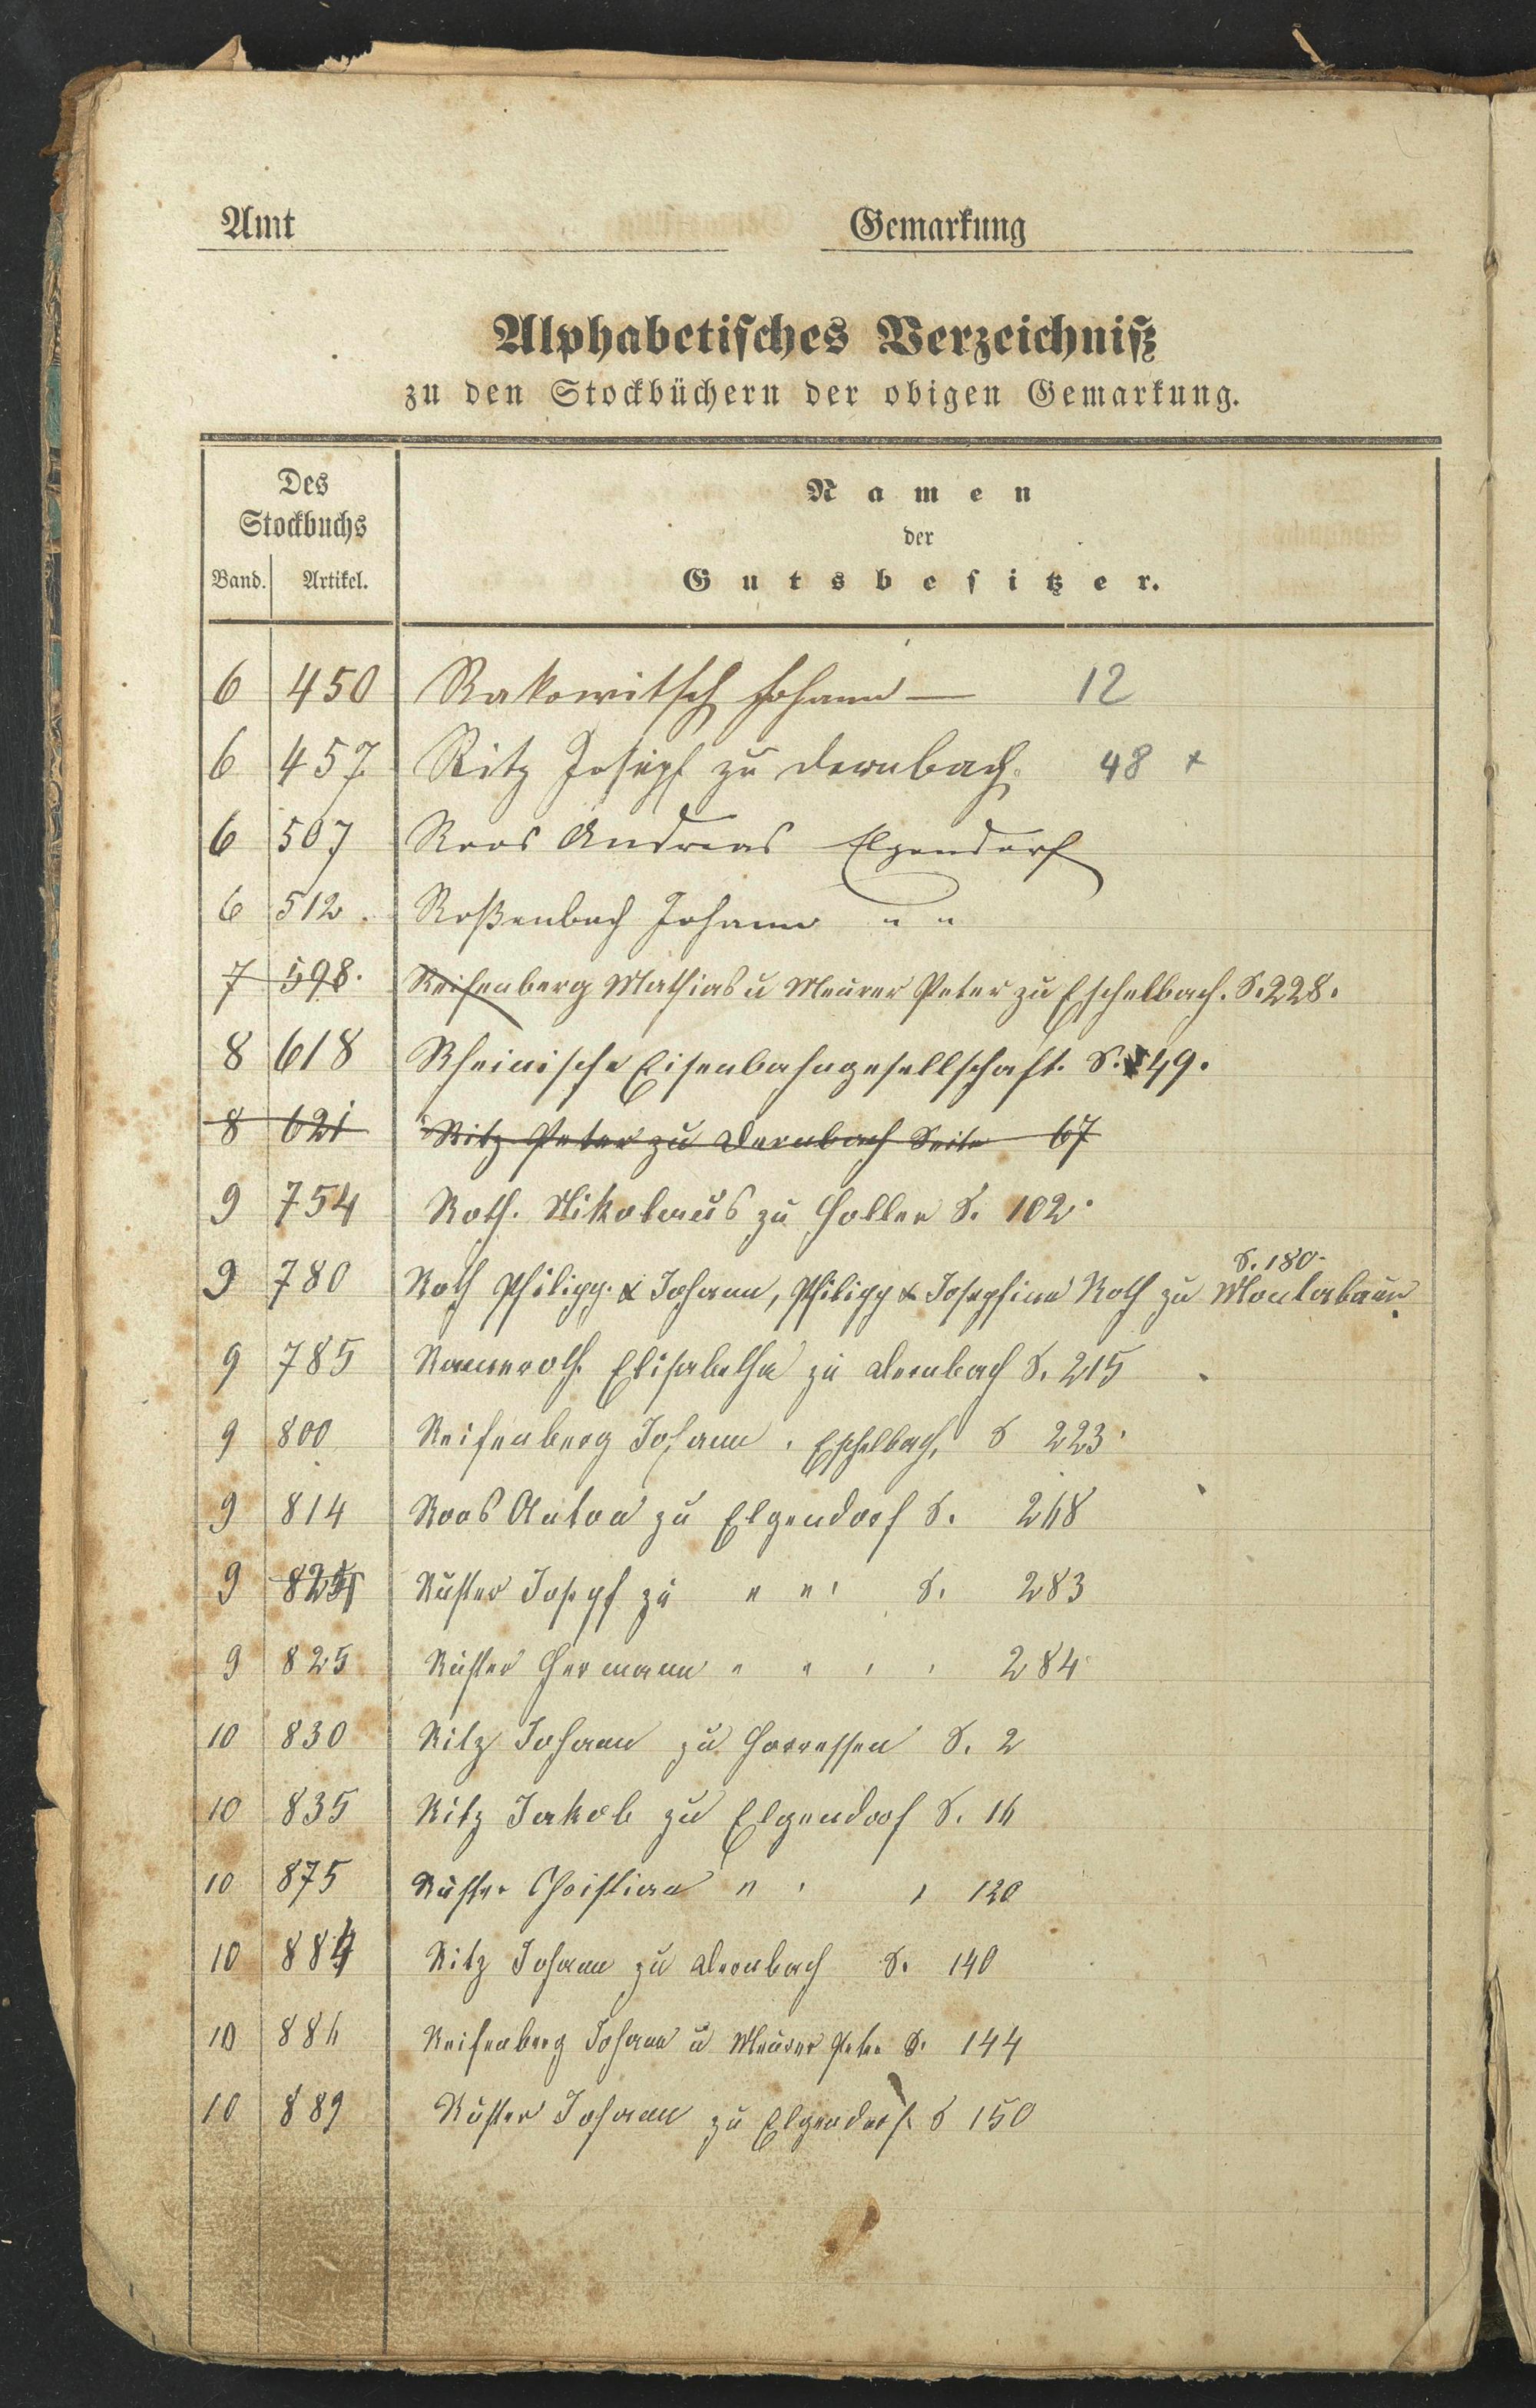 Amt Gemarkung
Alphabetisches Verzeichniß
zu den Stockbüchern der obigen Gemarkung.
Des
Stockbuchs
Band. Artikel.
Namen
der
Gutsbesitzer.
6 450 Rakowitsch Johann — 12
6 457 Ritz Joseph zu Dernbach. 48 x
6 507 Roos Andreas Elgendorf
6 512. Roßenbach Johann " "
7 598. Reifenberg Mathias u Meurer Peter zu Eschelbach. S. 228.
8 618 Rheinische Eisenbahngesellschaft. S. 49.
8 621 Ritz Peter zu Dernbach Seite 67
9 754 Roth. Nikolaus zu Holler S. 102.
S. 180.
9 780 Roth Philipp. & Johann, Philipp & Josephine Roth zu Montabaur.
9 785 Elisabetha zu Dernbach S. 215
9 800 Reifenberg Johann. Eschelbach, S 223.
9 814 Roos Anton zu Elgendorf S. 268
9 Rüster Joseph zu " " ' S. 283
9 825 Rüster Hermann " " ' ' 284
10 830 Ritz Johann zu Horressen S. 2
10 835 Ritz Jakob zu Elgendorf S. 16
10 875 Rüster Christian " ' ' 120
10 884 Ritz Johann zu Dernbach S. 140
10 886 Reifenberg Johann u Meurer Peter S. 144
10 889 Rüster Johann zu Elgendorf. S 150